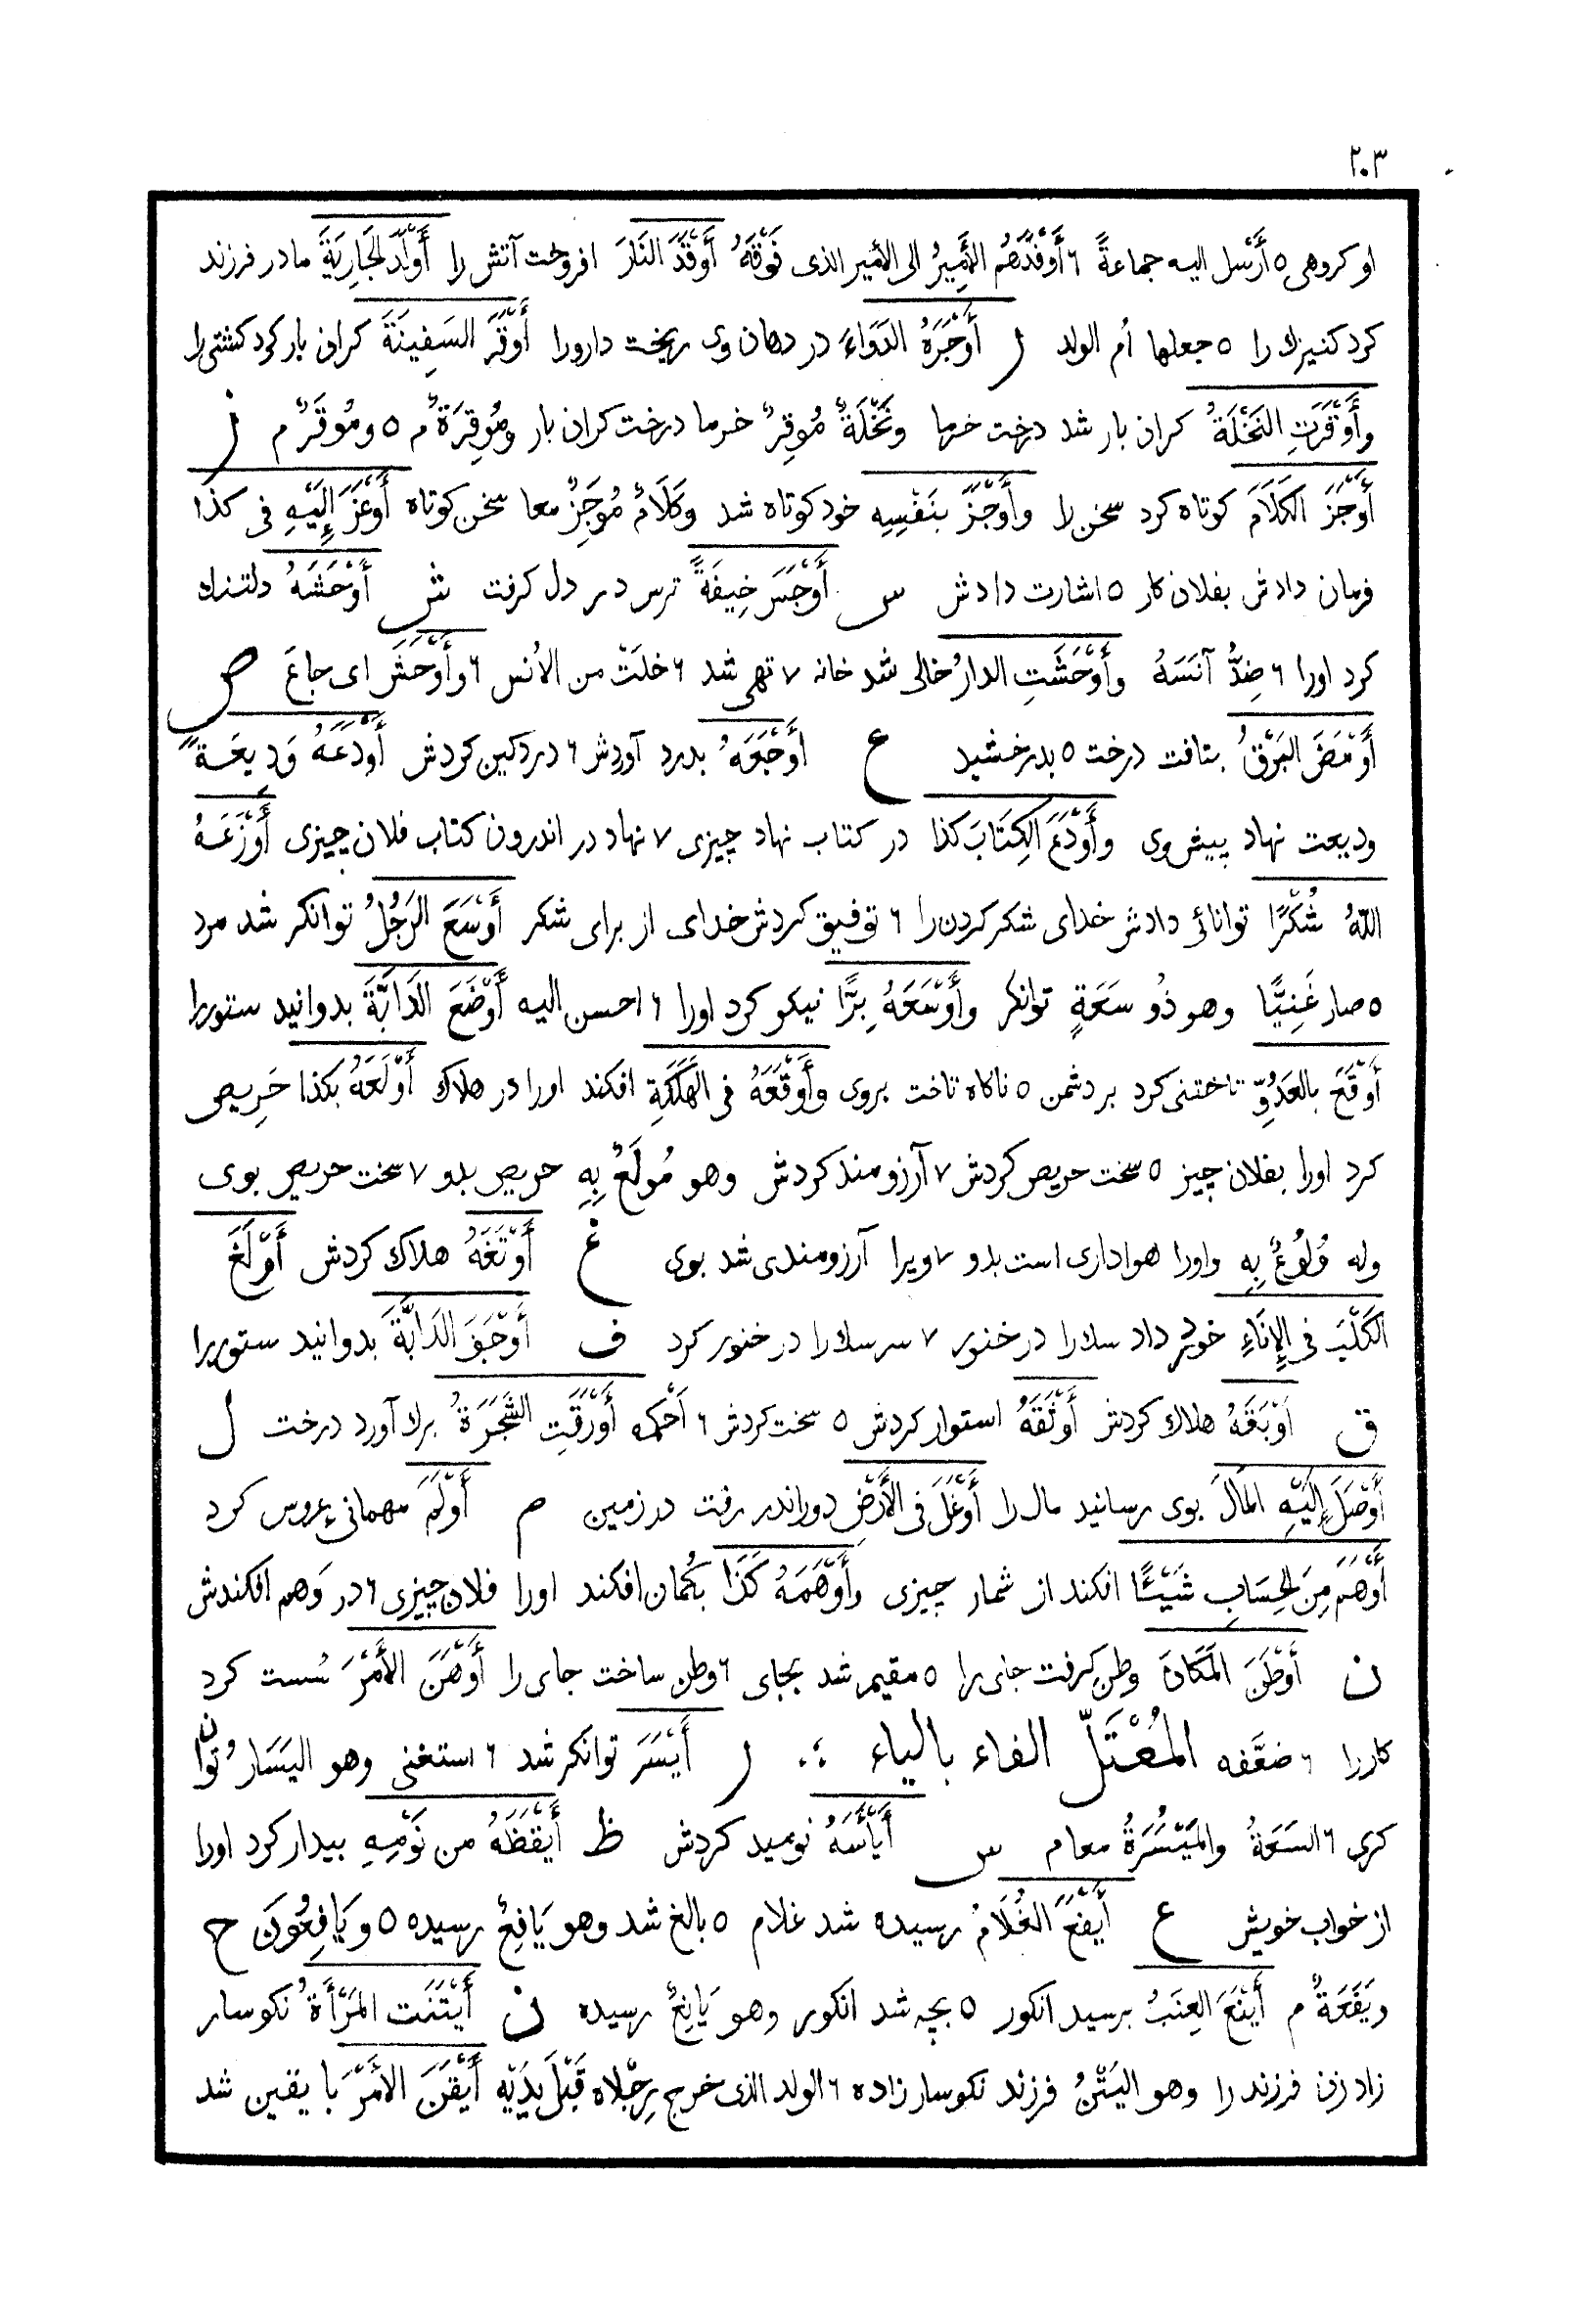 ٢٠٣
او كروهى ٥ أَرْسل اليه جماعةً ٦ أَوْفَدَهُم الأَمِيرُ الى الأمير الذى فَوْقَهُ أَوْقَدَ النَارَ افروخت آتش را أَوْلَدَ الجَارِيَةَ مادر فرزند
كرد كنيزك را ٥ جعلها أم الولد ر أَوْجَرَهُ الدَوَاءَ در دهان وى ريخت دارورا أَوْقَرَ السَفِينَةَ كران بار كرد كشتى را
وأَوْقَرَتِ النَخْلَةُ كران بار شد درخت خرما ونَخْلَةٌ مُوقِرٌ خرما درخت كران بار ومُوقِرَةٌ م ٥ ومُوقَرٌ م ز
أَوْجَزَ الكَلَامَ كوتاه كرد سخن را وأَوْجَزَ بنَفْسِهِ خود كوتاه شد وكَلَامٌ مُوجَِزٌ معا سخن كوتاه أَوْعَزَ إِلَيْهِ فى كذا
فرمان دادش بفلان كار ٥ اشارت دادش س أَوْجَسَ خِيفَةً ترس در دل كرفت ش أَوْحَشَهُ دلتنك
كرد اورا ٦ ضِدُّ آنَسَهُ وأَوْحَشَتِ الدارُ خالى شد خانه ٧ تهى شد ٦ خلَتْ من الأنس ٦ وأَوْحَشَ اى جاعَ ض
أَوْمَضَ البَرْقُ بتافت درخت ٥ بدرخشيد ع أَوْجَعَهُ بدرد آوردش ٦ دردكين كردش أَوْدَعَهُ وَدِيعَةً
وديعت نهاد پيش وى وأَوْدَعَ الكِتَابَ كذا در كتاب نهاد چيزى ٧ نهاد در اندرون كتاب فلان چيزى أَوْزَعَهُ
اللهُ شُكْرًا توانائى دادش خداى شكر كردن را ٦ توفيق كردش خداى از براى شكر أَوْسَعَ الرَجُلُ توانكر شد مرد
٥ صار غَنِيًّا وهو ذُو سَعَةٍ توانكر وأَوْسَعَهُ بِرًّا نيكو كرد اورا ٦ احسن اليه أَوْضَعَ الدَابَّةَ بدوانيد ستوررا
أَوْقَعَ بالعَدُوِّ تاختنى كرد بر دشمن ٥ ناكاه تاخت بروى وأَوْقَعَهُ فى الهَلَكَةِ افكند اورا در هلاك أَوْلَعَهُ بكذا حَرِيص
كرد اورا بفلان چيز ٥ سخت حريص كردش ٧ آرزومند كردش وهو مُولَعٌ بِهِ حريص بدو ٧ سخت حريص بوى
وله وُلُوعٌ بِهِ واورا هوادارى است بدو ٧ ويرا آرزومندى شد بوى غ أَوْتَغَهُ هلاك كردش أَوْلَغَ
الكَلْبَ فى الإِنَاءِ خورد داد سك را در خنور ٧ سر سك را در خنور كرد ف أَوْجَفَ الدَابَّةَ بدوانيد ستوررا
ق أَوْبَقَهُ هلاك كردش أَوْثَقَهُ استوار كردش ٥ سخت كردش ٦ أَحْكَمه أَوْرَقَتِ الشَجَرَةُ برك آورد درخت ل
أَوْصَلَ إِلَيْهِ المَالَ بوى رسانيد مال را أَوْغَلَ فى الأَرْضِ دور اندر رفت در زمين م أَوْلَمَ مهمانىء عروس كرد
أَوْهَمَ مِنَ الحِسَابِ شَيْئًا افكند از شمار چيزى وأَوْهَمَهُ كَذَا بكمان افكند اورا فلان چيزى ٦ در وَهم افكندش
ن أَوْطَنَ المَكَانَ وطن كرفت جاى را ٥ مقيم شد بجاى ٦ وطن ساخت جاى را أَوْهَنَ الأَمْرَ سُست كرد
كاررا ٦ ضعَّفه المُعْتَلّ الفاء بالياء ر أَيْسَرَ توانكر شد ٦ استغنى وهو اليَسَارُ توان
كرى ٦ السَعَةُ والمَيْسُرَةُ معا م س أَيْأَسَهُ نوميد كردش ظ أَيْقَظَهُ من نَوْمِهِ بيدار كرد اورا
از خواب خويش ع أَيْفَعَ الغُلَامُ رسيده شد غلام ٥ بالغ شد وهو يَافِعٌ رسيده ٥ ويَافِعُونَ ج
ويَفَعَةٌ م أَيْنَعَ العِنَبُ برسيد انكور ٥ پچه شد انكور وهو يَانِعٌ رسيده ن أَيْتَنَت المَرْأَةُ نكوسار
زاد زن فرزند را وهو اليَتْنُ فرزند نكوسار زاده ٦ الولد الذى خرج رِجْلاه قَبْلَ يدَيْهِ أَيْقَنَ الأَمْرَ با يقين شد